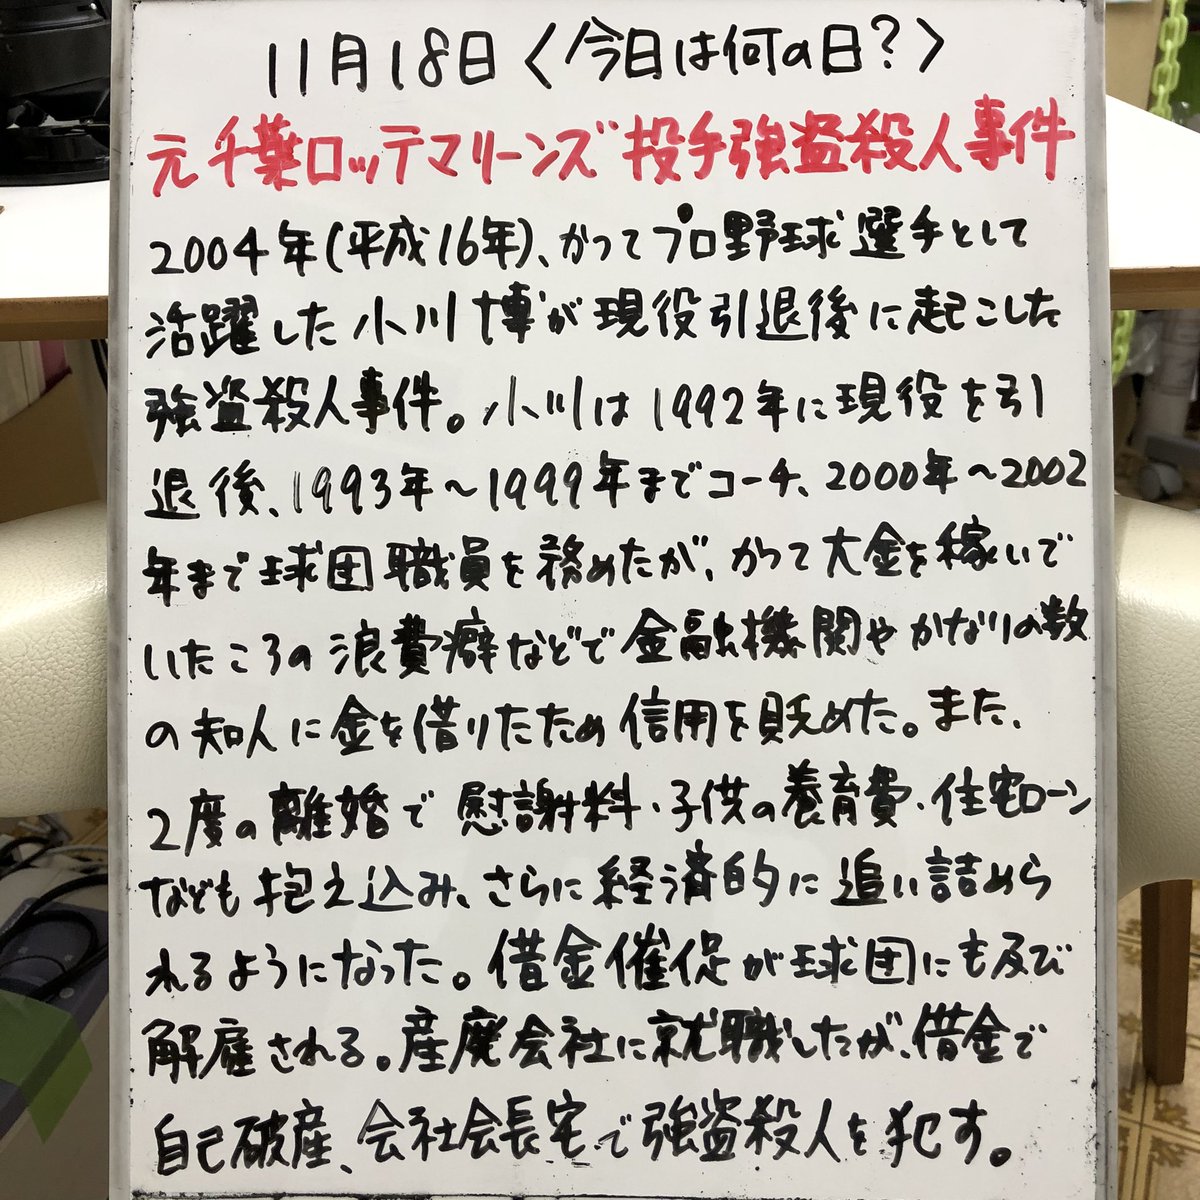 11月18日〈今日は何の日?〉
元千葉ロッテマリーンズ投手強盗殺人事件
2004年(平成16年)、かつてプロ野球選手として
活躍した小川博が現役引退後に起こした
強盗殺人事件。小川は1992年に現役を引
退後、1993年〜1999年までコーチ、2000年〜2002
年まで球団職員を務めたが、かつて大金を稼いで
いたころの浪費癖などで金融機関やかなりの数
の知人に金を借りたため信用を貶めた。また、
2度の離婚で慰謝料・子供の養育費・住宅ローン
なども抱え込み、さらに経済的に追い詰めら
れるようになった。借金催促が球団にも及び
解雇される。産廃会社に就職したが、借金で
自己破産、会社会長宅で強盗殺人を犯す。